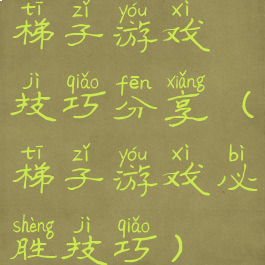 tī zǐ yóu xì
梯子游戏
jì qiǎo fēn xiǎng
技巧分享（
tī zǐ yóu xì bì
梯子游戏必
shèng jì qiǎo
胜技巧）